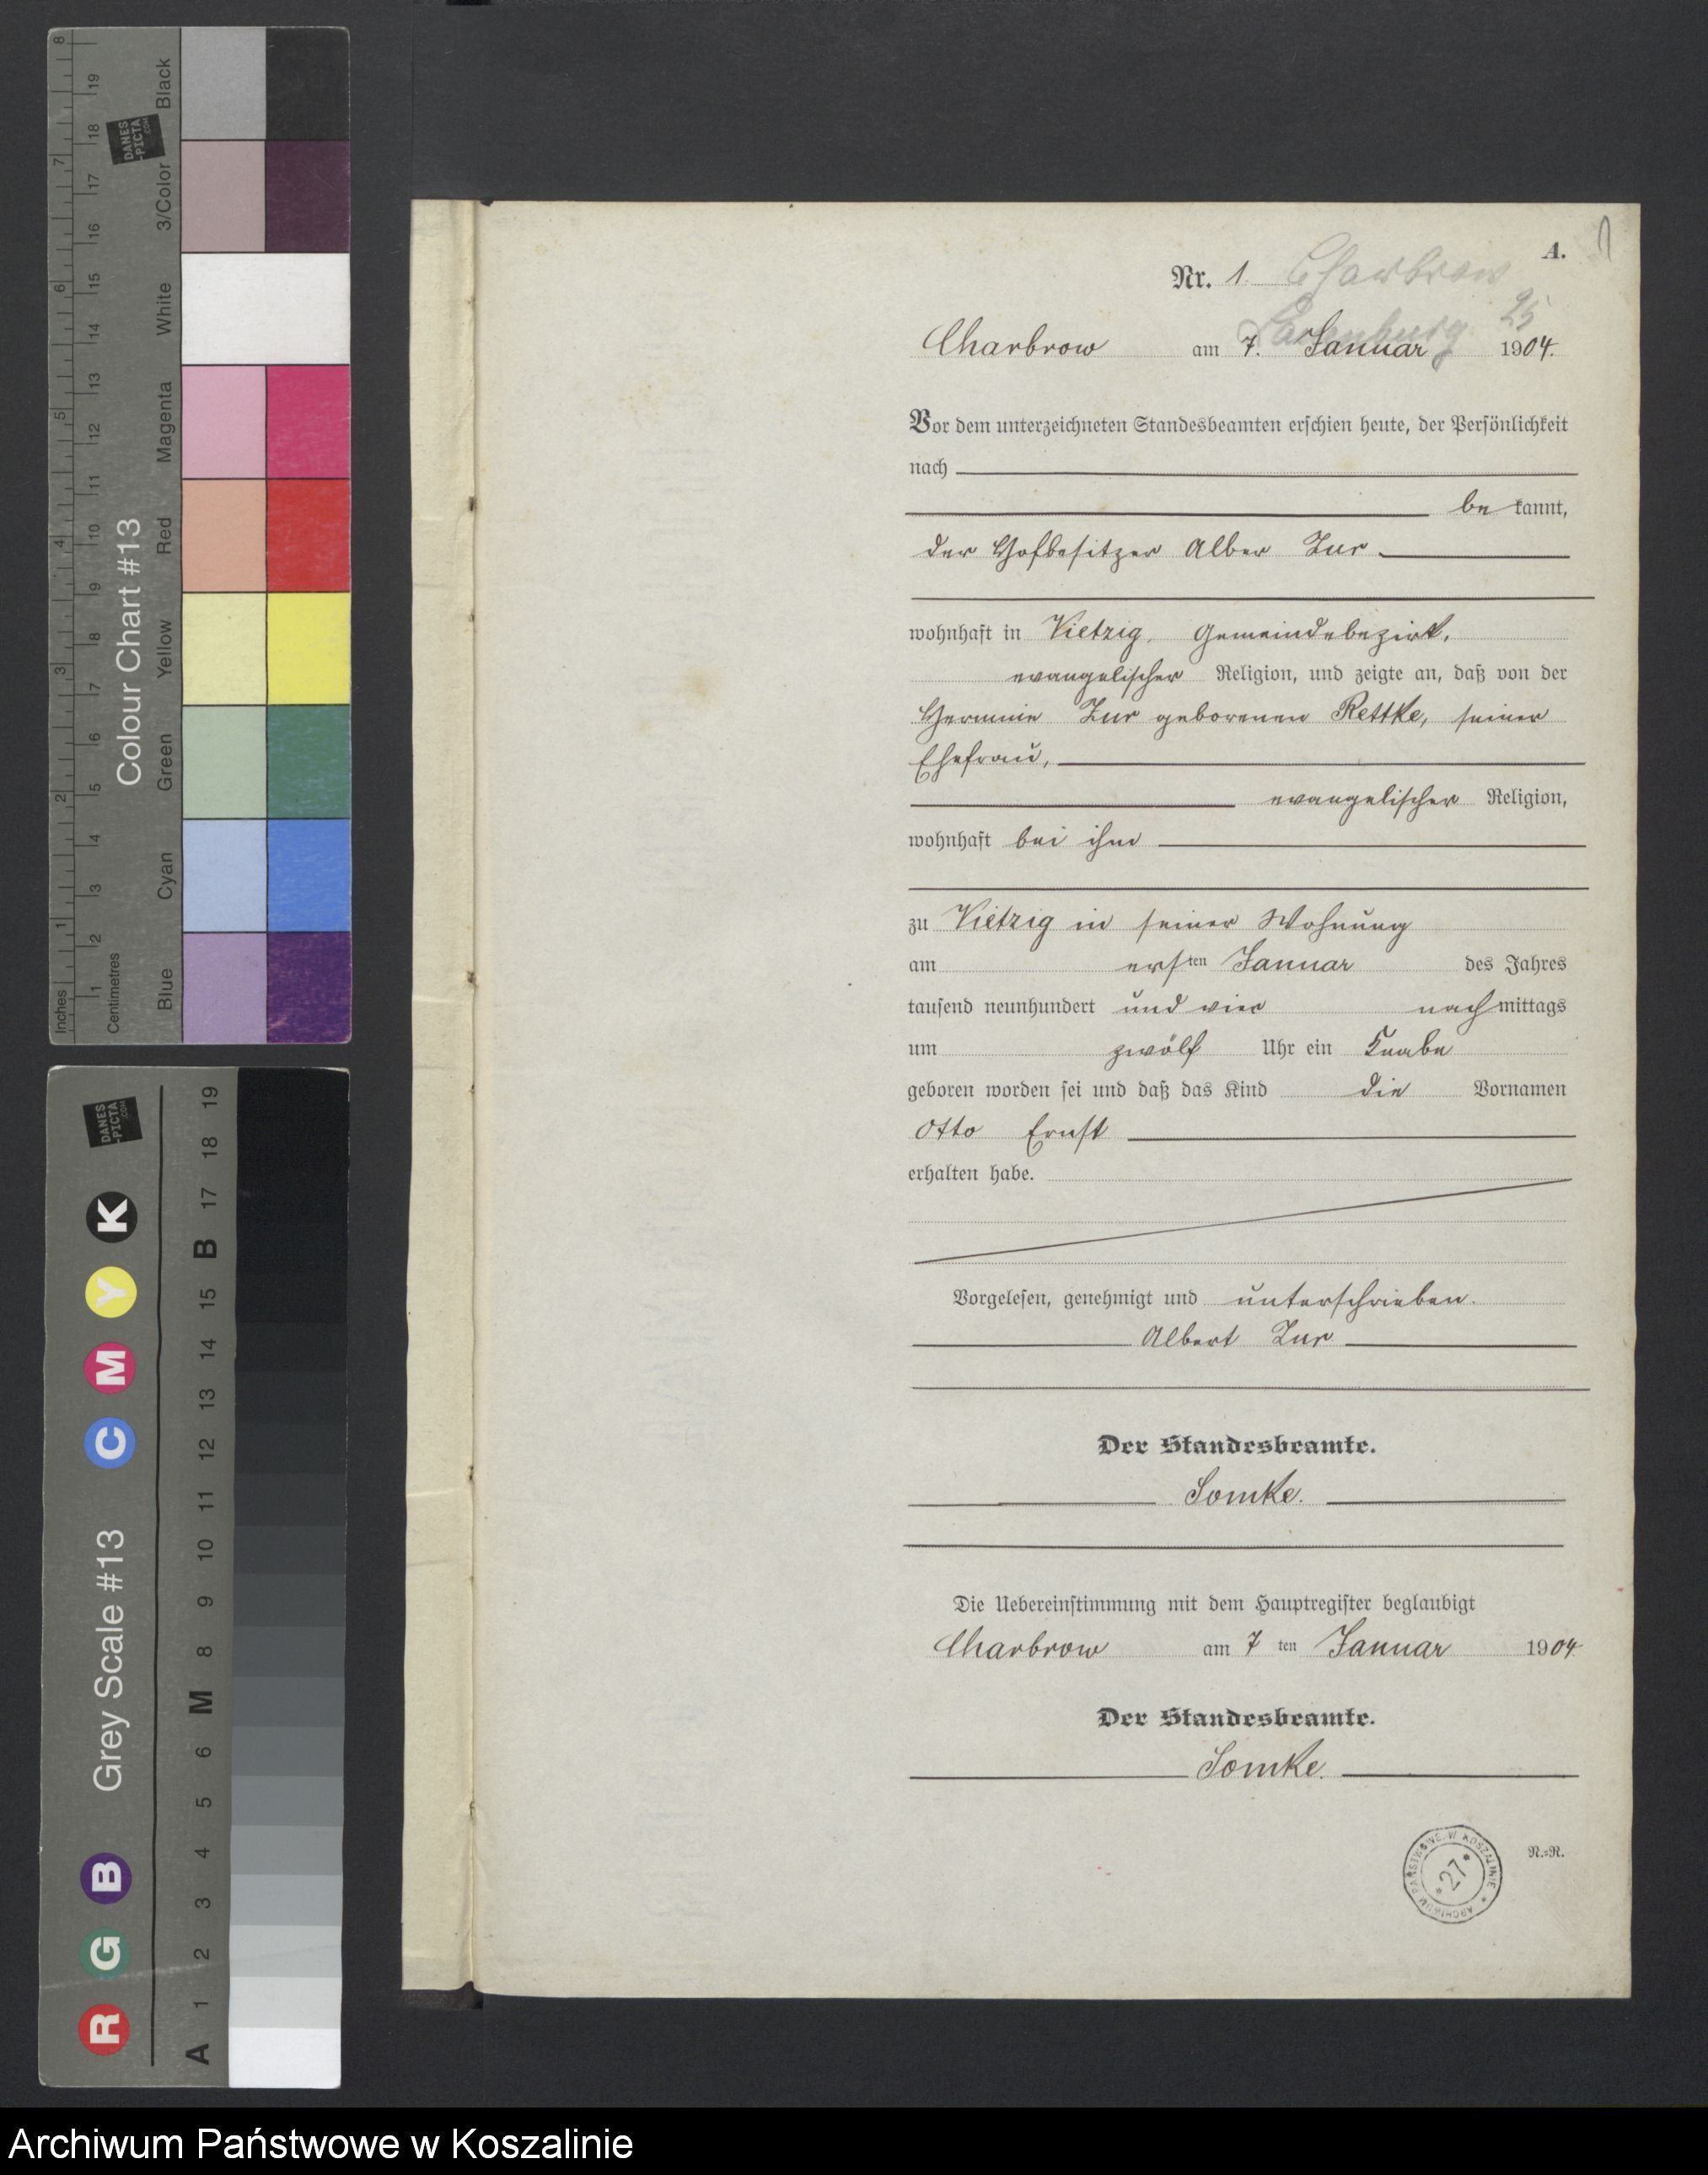 A.
Nr. 1. Charbrow
Lauenburg 25
Charbrow am 7. Januar 1904.
Vor dem unterzeichneten Standesbeamten erschien heute, der Persönlichkeit
nach
be kannt,
der Hofbesitzer Alber Zur
wohnhaft in Vietzig, Gemeindebezirk,
evangelischer Religion, und zeigte an, daß von der
Hermine Zur geborenen Rettke, seiner
Ehefrau,
evangelischer Religion,
wohnhaft bei ihm
zu Vietzig in seiner Wohnung
am ersten Januar des Jahres
tausend neunhundert und vier nachmittags
um zwölf Uhr ein Knabe
geboren worden sei und daß das Kind die Vornamen
Otto Ernst
erhalten habe.
Vorgelesen, genehmigt und unterschrieben.
Albert Zur
Der Standesbeamte.
Somke.
Die Uebereinstimmung mit dem Hauptregister beglaubigt
Charbrow am 7 ten Januar 1904
Der Standesbeamte.
Somke.
ARCHIWUM PAŃSTWOWE W KOSZALINIE
* 27 *
N.=R.
Inches 1 2 3 4 5 6 7 8
Centimetres 1 2 3 4 5 6 7 8 9 10 11 12 13 14 15 16 17 18 19
Colour Chart #13
DANES
-PICTA
.COM
Blue Cyan Green Yellow Red Magenta White 3/Color Black
Grey Scale #13
R G B C M Y K
DANES
-PICTA
.COM
A 1 2 3 4 5 6 M 8 9 10 11 12 13 14 15 B 17 18 19
Archiwum Państwowe w Koszalinie